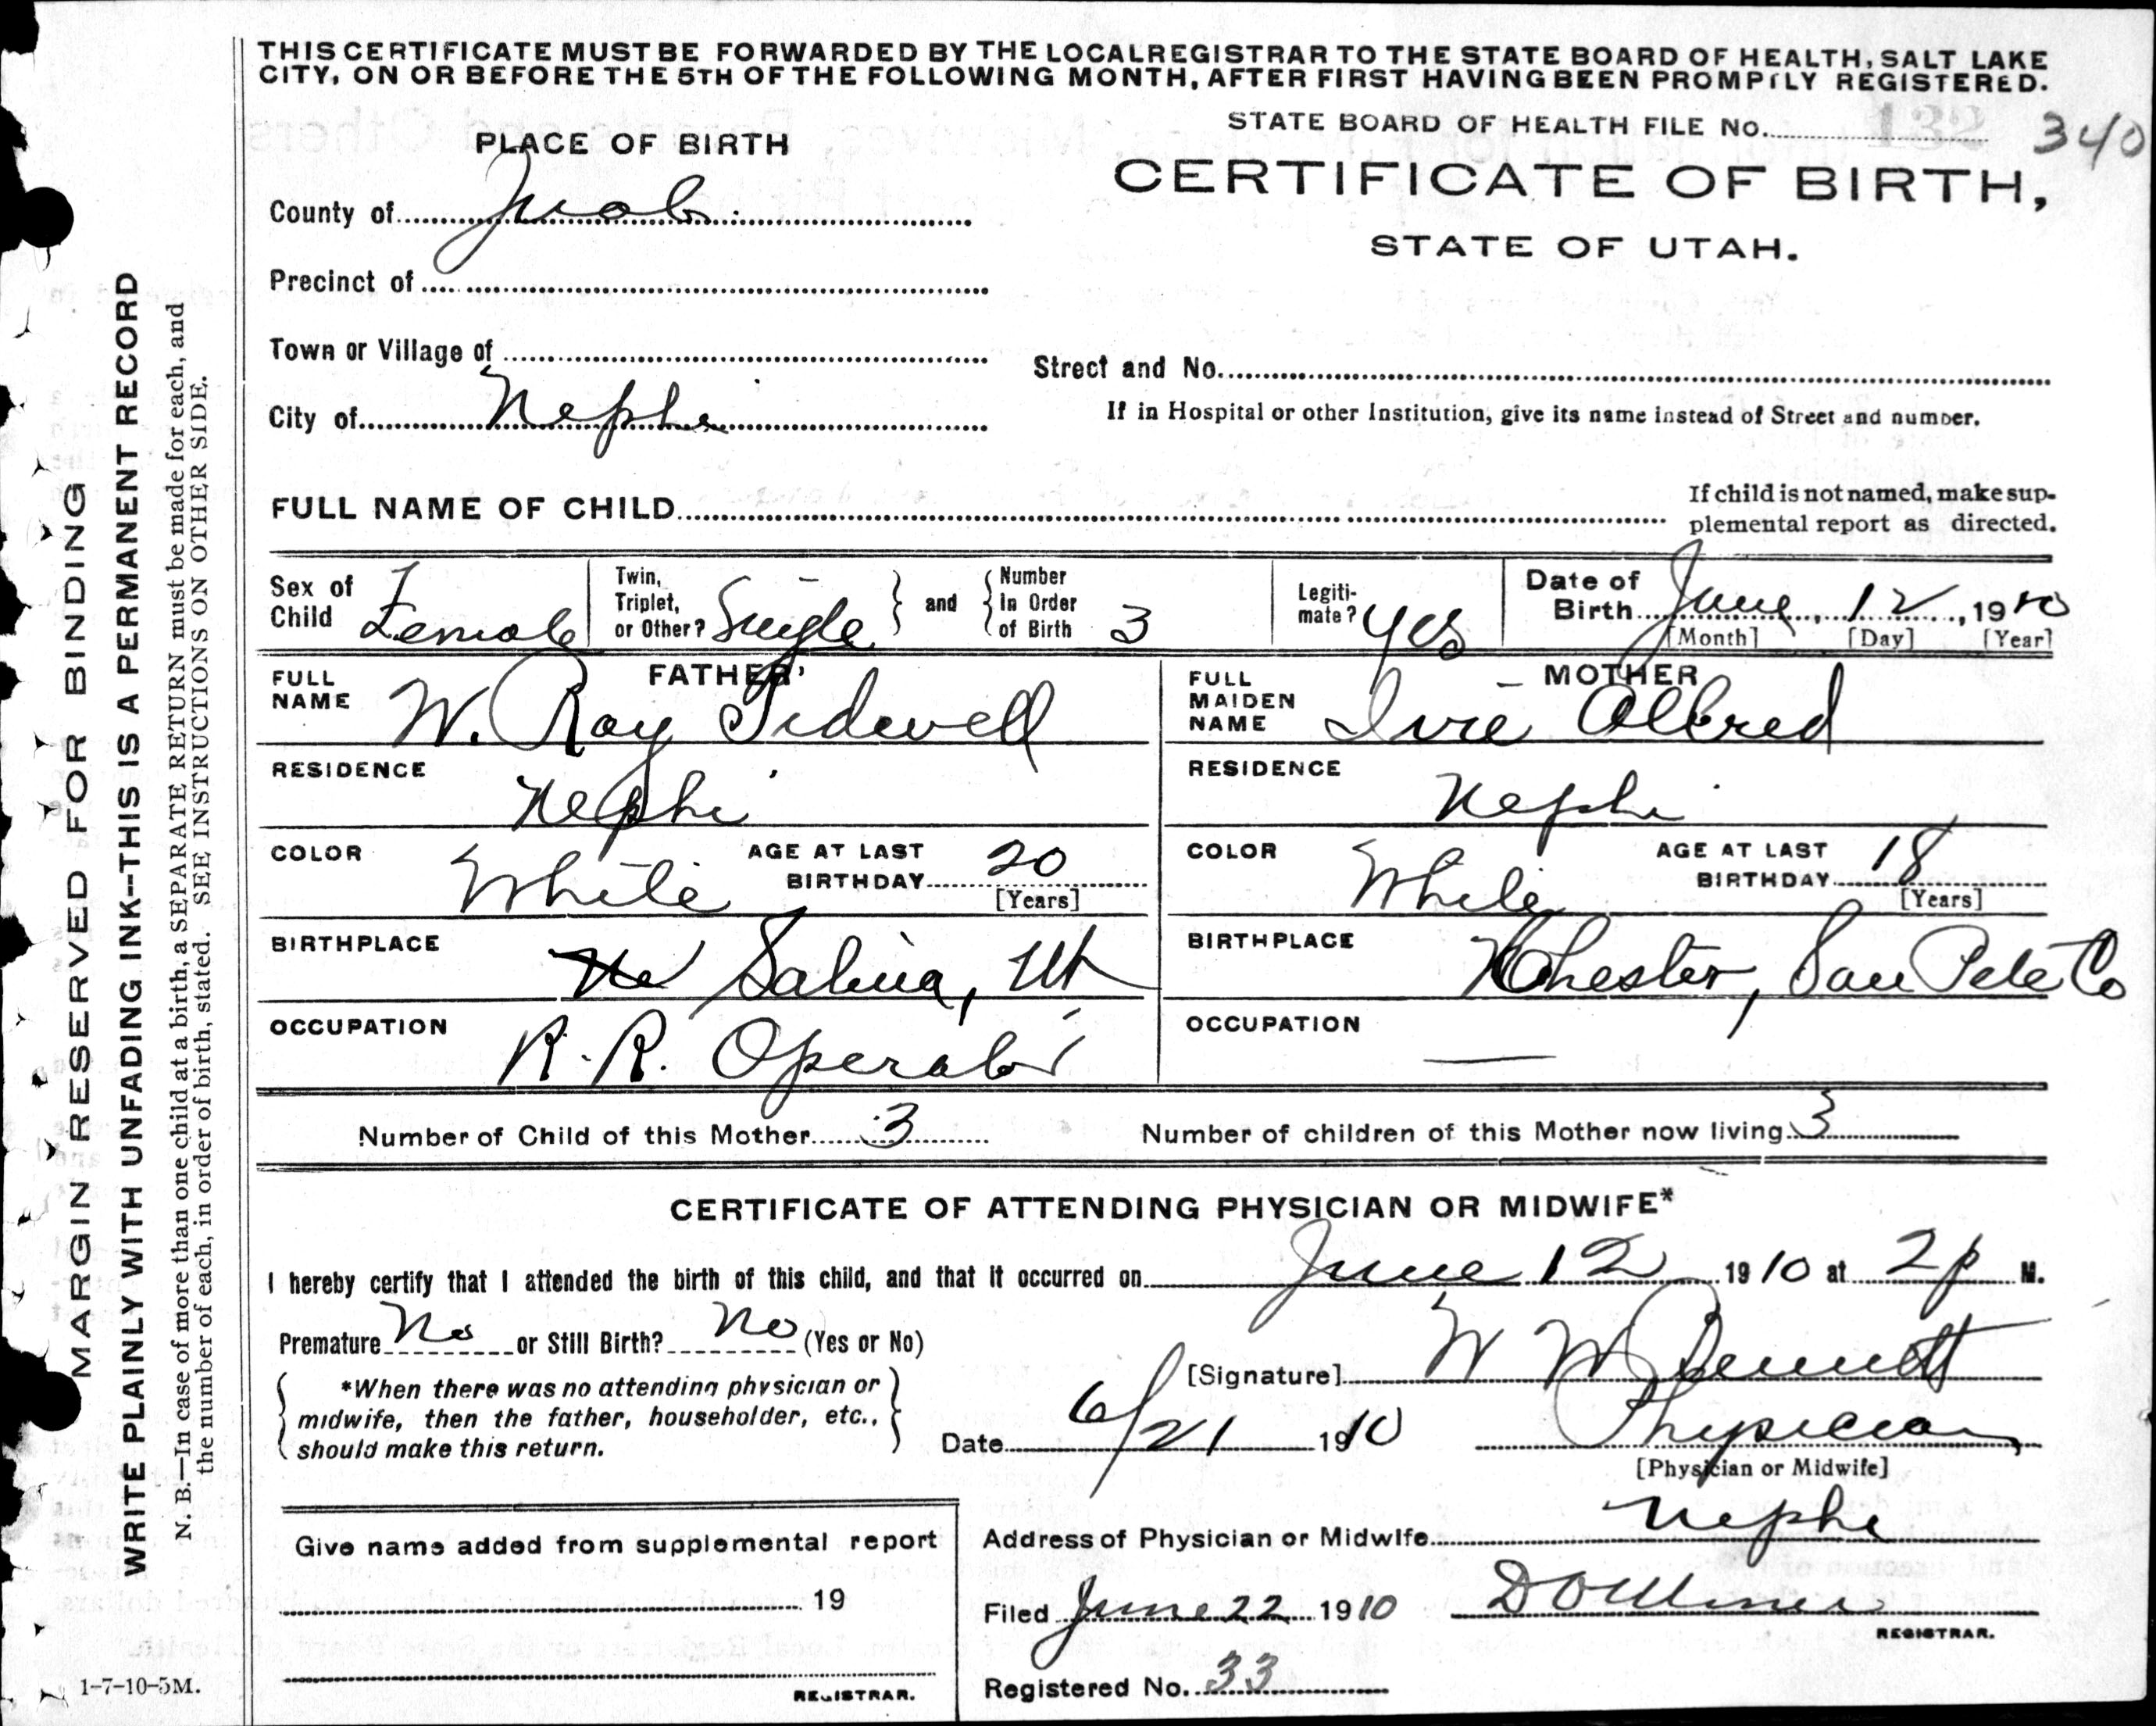 THIS CERTIFICATE MUST BE FORWARDED BY THE LOCAL REGISTRAR TO THE STATE BOARD OF HEALTH, SALT LAKE
CITY, ON OR BEFORE THE 5TH OF THE FOLLOWING MONTH, AFTER FIRST HAVING BEEN PROMPTLY REGISTERED.
STATE BOARD OF HEALTH FILE No. 132 340
PLACE OF BIRTH
CERTIFICATE OF BIRTH,
STATE OF UTAH.
County of Juab
Precinct of
Town or Village of
Street and No.
City of Nephi
If in Hospital or other Institution, give its name instead of Street and number.
FULL NAME OF CHILD
If child is not named, make sup-
plemental report as directed.
Sex of Child Female
Twin, Triplet, or Other? Single
and Number In Order of Birth 3
Legiti-mate? Yes
Date of Birth June, 12, 1910
[Month] [Day] [Year]
FATHER
FULL NAME W. Ray Tidwell
RESIDENCE Nephi
COLOR White AGE AT LAST BIRTHDAY 20 [Years]
BIRTHPLACE Ne Salina, Ut
OCCUPATION R. R. Operator
MOTHER
FULL MAIDEN NAME Ivie Allred
RESIDENCE Nephi
COLOR White AGE AT LAST BIRTHDAY 18 [Years]
BIRTHPLACE Chester, San Pete Co
OCCUPATION —
Number of Child of this Mother 3
Number of children of this Mother now living 3
CERTIFICATE OF ATTENDING PHYSICIAN OR MIDWIFE*
I hereby certify that I attended the birth of this child, and that it occurred on June 12 1910 at 2 p M.
Premature No or Still Birth? No (Yes or No)
*When there was no attending physician or
midwife, then the father, householder, etc.,
should make this return.
[Signature] W W Bennett
Date 6/21 1910 Physician
[Physician or Midwife]
Address of Physician or Midwife Nephi
Filed June 22 1910
REGISTRAR.
Registered No. 33
Give name added from supplemental report
19
REGISTRAR.
1-7-10-5M.
MARGIN RESERVED FOR BINDING
WRITE PLAINLY WITH UNFADING INK--THIS IS A PERMANENT RECORD
N. B.—In case of more than one child at a birth, a SEPARATE RETURN must be made for each, and
the number of each, in order of birth, stated. SEE INSTRUCTIONS ON OTHER SIDE.